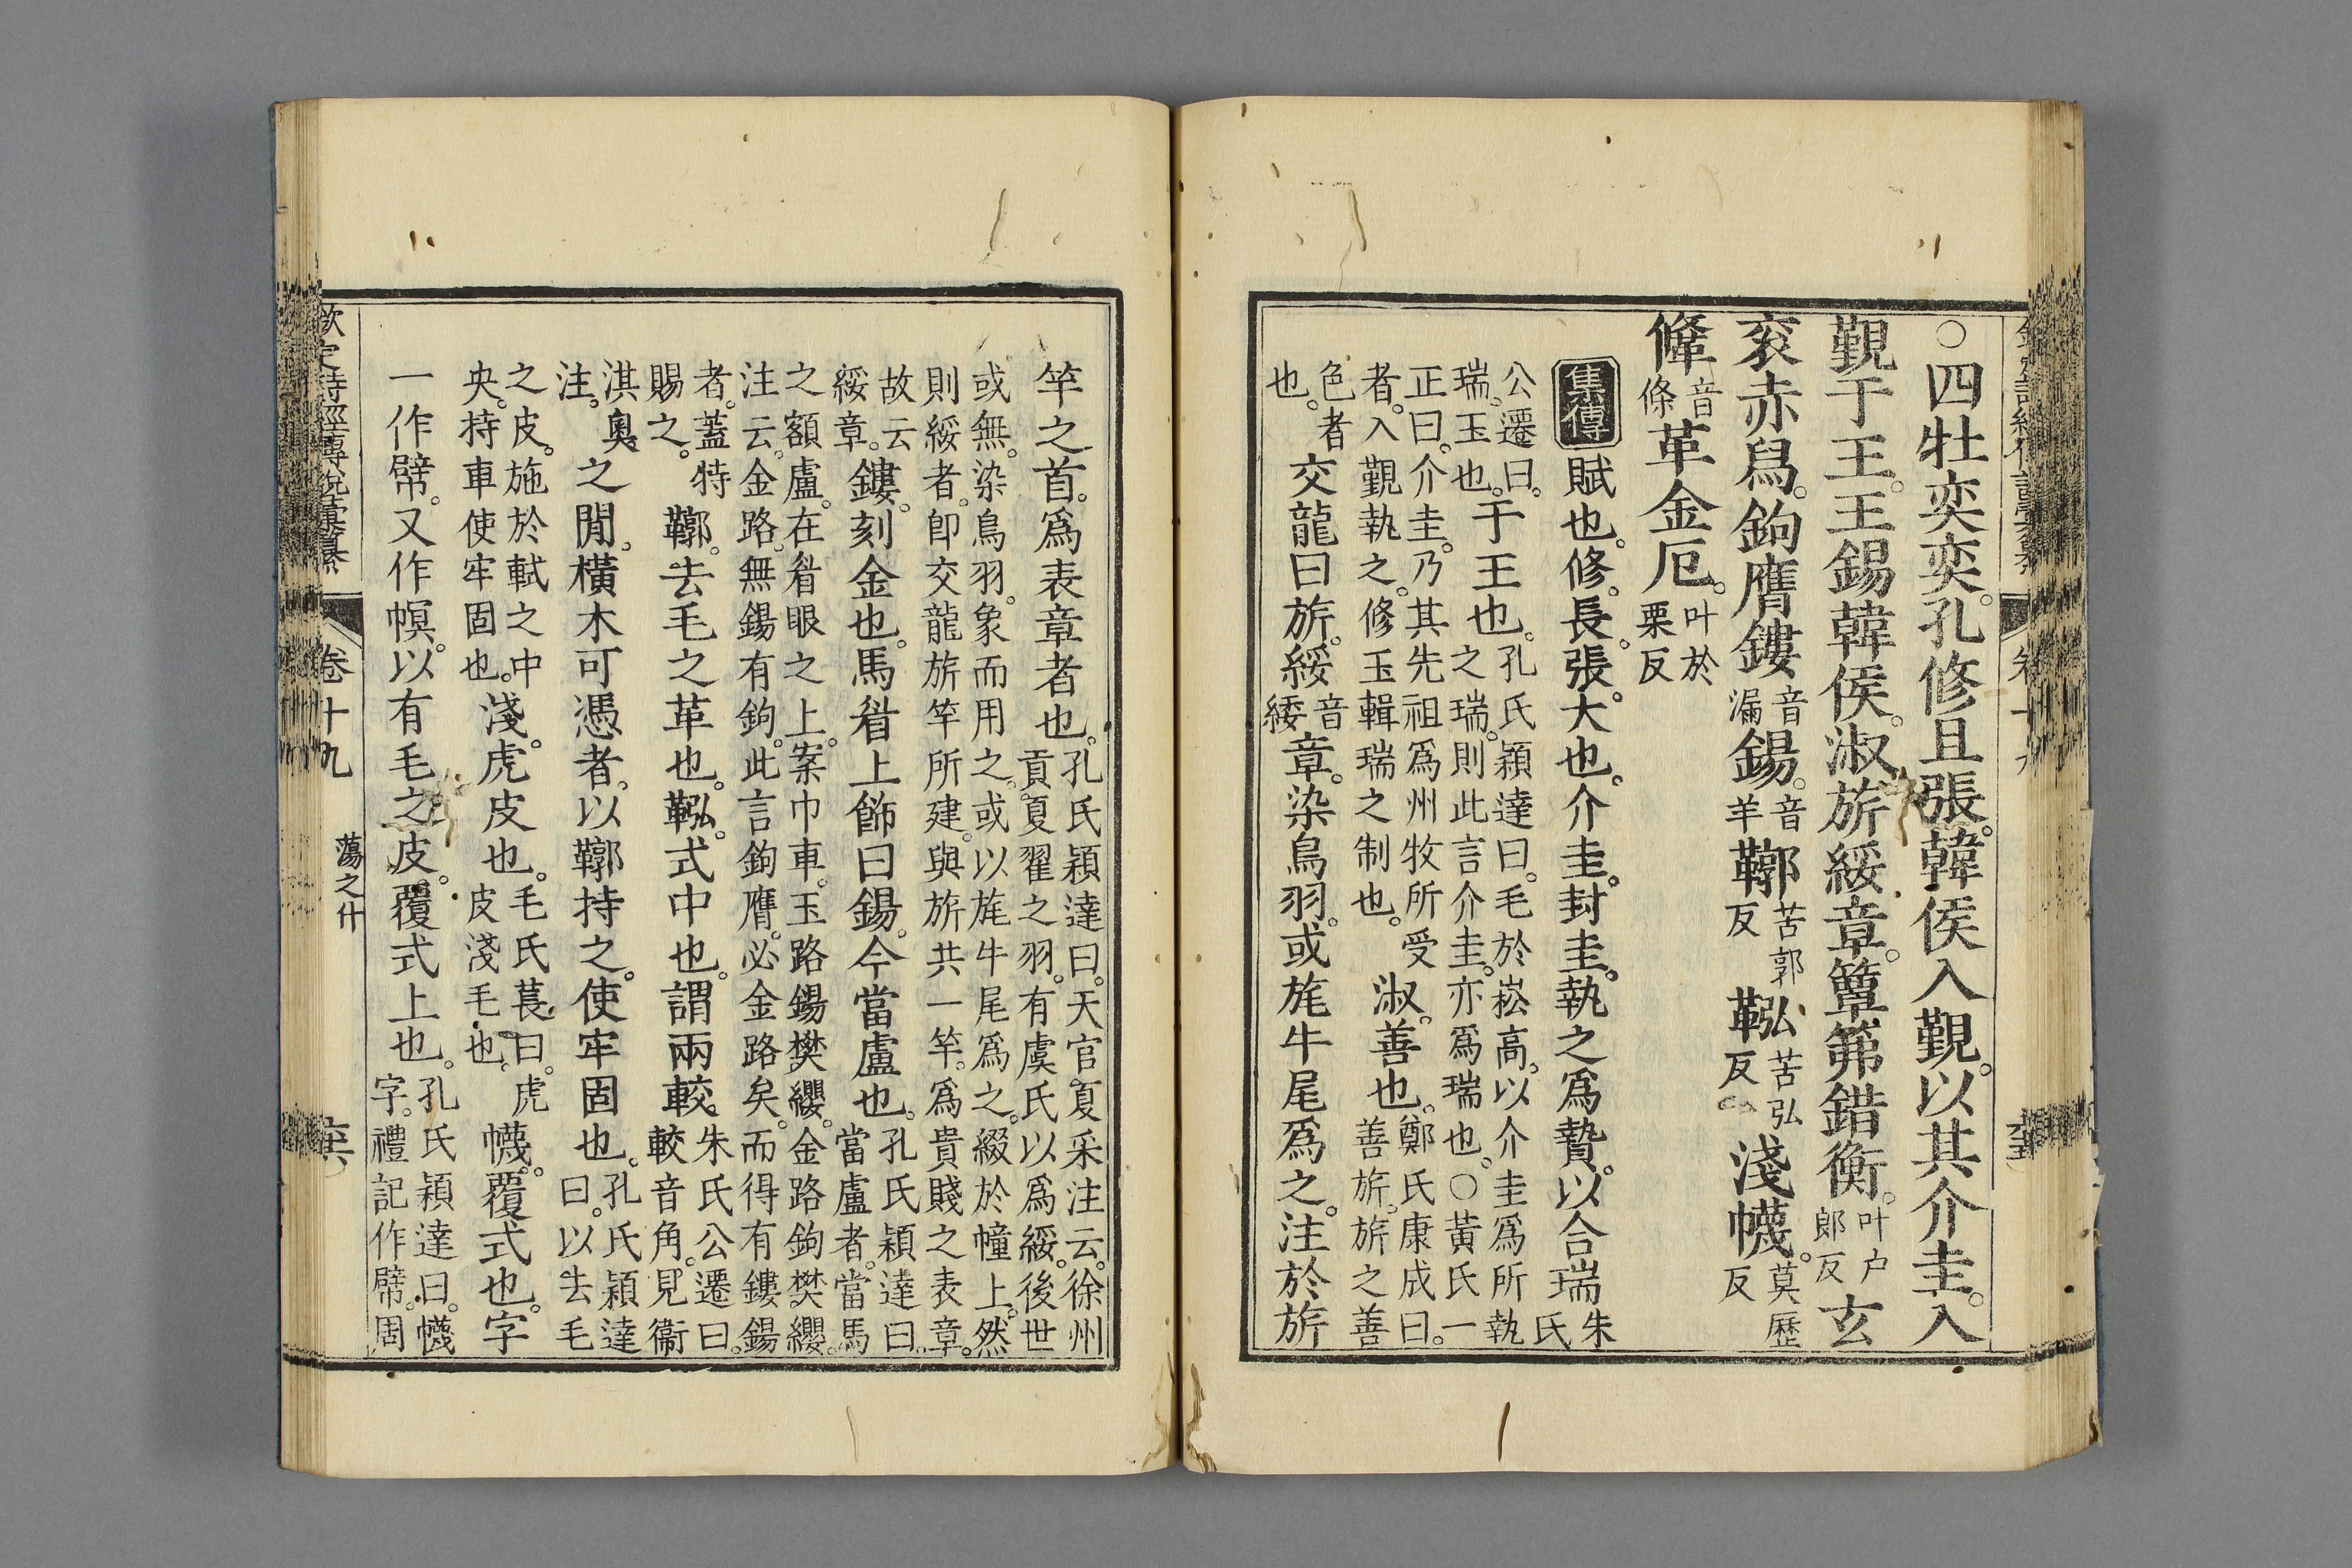 ○四牡奕奕。孔修且張。韓侯入覲。以其介圭。入
覲于王。王錫韓侯。淑旂綏章。簟茀錯衡。叶户郞反玄
衮赤舄。鉤膺鏤音漏鍚。音羊鞹苦郭反鞃苦弘反淺幭。莫歷反
鞗音條革金厄。叶於栗反
集傳賦也。修。長。張。大也。介圭。封圭。執之爲贄。以合瑞朱氏
公遷曰。瑞。玉也。于王也。孔氏穎達曰。毛於崧高。以介圭爲所執之瑞。則此言介圭。亦爲瑞也。○黃氏一
正曰。介圭。乃其先祖爲州牧所受者。入覲執之。修玉輯瑞之制也。淑。善也。鄭氏康成曰。善旂。旂之善
色者也。交龍曰旂。綏音緌章。染鳥羽。或旄牛尾爲之。注於旂
竿之首。爲表章者也。孔氏穎達曰。天官夏采注云。徐州貢夏翟之羽。有虞氏以爲綏。後世
或無。染鳥羽。象而用之。或以旄牛尾爲之。綴於幢上。然則綏者。卽交龍旂竿所建。與旂共一竿。爲貴賤之表章。
故云綏章。鏤。刻金也。馬眉上飾曰鍚。今當盧也。孔氏穎達曰。當盧者。當馬
之額盧。在眉眼之上。案巾車。玉路鍚樊纓。金路鉤樊纓。注云。金路。無鍚有鉤。此言鉤膺。必金路矣。而得有鏤鍚
者。蓋特賜之。鞹。去毛之革也。鞃。式中也。謂兩較。朱氏公遷曰。較音角。見衞
淇奧注。之閒。橫木可憑者。以鞹持之。使牢固也。孔氏穎達曰。以去毛
之皮。施於軾之中央。持車使牢固也。淺。虎皮也。毛氏萇曰。虎皮淺毛也。幭。覆式也。字
一作幦。又作幎。以有毛之皮。覆式上也。孔氏穎達曰。幭字。禮記作幦。周
欽定詩經傳說彙纂
卷十九
蕩之什